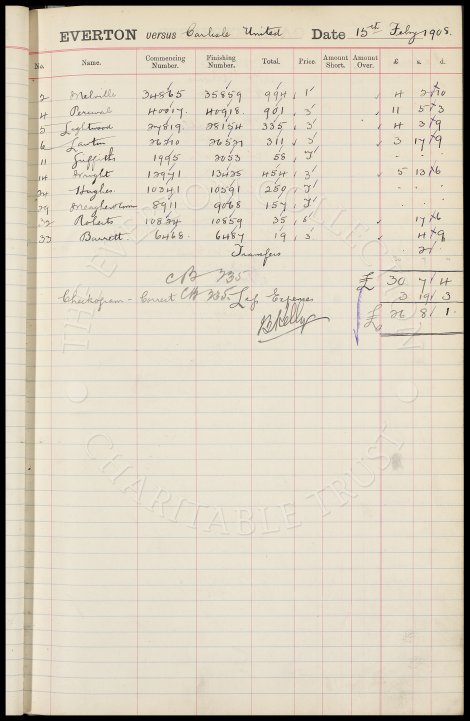 EVERTON versus Carlisle United Date 15th Feby 1908.
No. Name. Commencing Number. Finishing Number. Total. Price. Amount Short. Amount Over. £ s. d.
2 Melville 34865 35859 994 1' 4 2 10
4 Percival 40017 40918 901 3' 11 5 3
5 Lightwood 27819 28154 335 3' 4 3 9
6 Lawton 26210 26521 311 3' 3 17 9
11 Griffiths 1995 2053 58 T'
14 Wright 12971 13425 454 3' 5 13 6
24 Hughes 10341 10591 250 T'
29 8911 9068 157 T'
Roberts 10824 10859 35 17 6
33 Barrett 6468 6487 19 3' 4 9
Transfers 2
CB 735 £ 30 7 4
Correct CB 735 Less Expenses 3 19 3
£ 26 8 1
THE EVERTON COLLECTION CHARITABLE TRUST